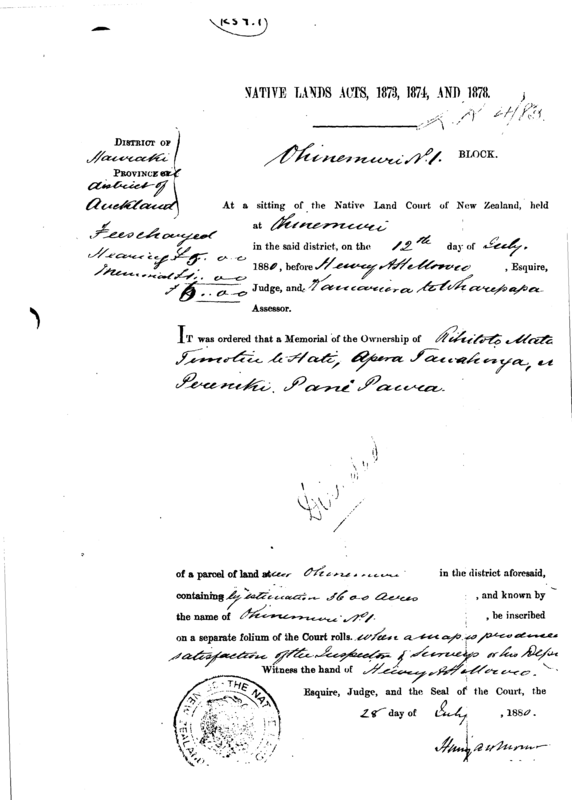 NATIVE LANDS ACTS, 1873, 1874, AND 1878.
DISTRICT OF
Hauraki
PROVINCE OF
district of
Auckland
Ohinemuri No 1. BLOCK.
Fees charged
Hearing £5. 0 0
Memorial £1. 0 0
£6..0.0
At a sitting of the Native Land Court of New Zealand, held
at Ohinemuri
in the said district, on the 12th day of July.
1880, before Henry A H Monro , Esquire,
Judge, and Kamariera te Wharepapa
Assessor.
IT was ordered that a Memorial of the Ownership of Rihitoto Mata
Timotiu te Hati, Apera Tawhinga,
Pereniki. Pane Pawea.
Divided
of a parcel of land at near Ohinemuri in the district aforesaid,
containing by estimation 3600 Acres , and known by
the name of Ohinemuri No 1. , be inscribed
on a separate folium of the Court rolls. when a map is produced
satisfaction of the Inspector of Surveys or his Depu
Witness the hand of Henry A H Monro.
Esquire, Judge, and the Seal of the Court, the
28 day of July , 1880.